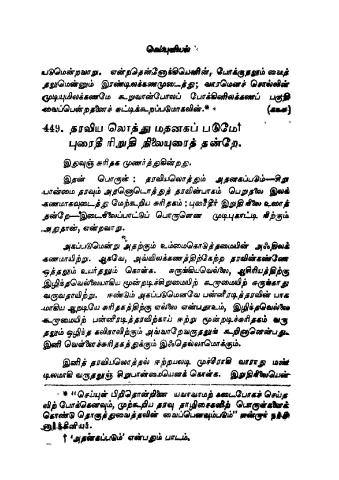 செய்யுளியல்
படுமென்றவாறு. என்றதென்னோக்கியெனின், போக்குதலும் வைத்
தலுமென்னும் இரண்டிலக்கணமுடைத்து; வாரமெனச் சொல்லின்
முடியுமிலக்கணமே கூறுவான்போலப் போக்கினிலக்கணப் பகுதி
வைப்பென்றதனைச் சுட்டிக்கூறப்படுமாகலின்.*
449. தரவிய லொத்து மதனகப் படுமே†
புரைதீ ரிறுதி நிலையுரைத் தன்றே.
இதுவுஞ் சுரிதக முணர்த்துகின்றது.
இதன் பொருள் : தரவியலொத்தும் அதனகப்படும்—சிறு
பான்மை தரவும் அதனொடொத்துத் தரவின்பாகம் பெறுதலே இலக்
கணமாகவுடைத்து மேற்கூறிய சுரிதகம் : புரைதீர் இறுதி நிலை உரைத்
தன்றே—இடைநிலைப்பாட்டுப் பொருளென முடிபுகாட்டி நிற்கும்
அதுதான், என்றவாறு.
அகப்படுமென்று அதற்கும் உம்மைகொடுத்தமையின் அஃதிலக்
கணமாயிற்று. ஆகவே, அவ்விலக்கணத்திற்கேற்ற தரவின்கண்ணே
ஒத்ததலும் உயர்தலும் கொள்க. சுருங்கியவெல்லை, ஆசிரியத்திற்கு
இழிந்தவெல்லையாகிய மூன்றடிச்சிறுமையிற் கூறுமையிற் சுருங்காது
வருவதாயிற்று. ஈண்டும் அகப்படுமெனவே பன்னீரடித்தரவின் பாக
மாகிய ஆறடியே சுரிதகத்திற்கு எல்லை என்பதூஉம், இழிந்தவெல்லை
கூறாமையிற் பன்னீரடித்தரவிற்காய் ஈற்று மூன்றடிச்சுரிதகம் வரு
தலும் ஒழிந்த கலிகளவிற்கும் அவ்வாறேவருதலும் கூறினானென்பது.
இனி வெள்ளைச்சுரிதகத்துக்கும் இஃதெல்லாமொக்கும்.
இனித் தரவியலொத்தல் ஈற்றயலடி முச்சீராகி வாராது மண்
டிலமாகி வருதலுஞ் சிறுபான்மையெனக் கொள்க. இறுதிநிலையென்
* “செய்யுள் பிறிதொன்றினை யவாவாமற் கடைபோகச் செய்த
லிற் போக்கெனவும், முற்கூறிய தரவு தாழிசைகளிற் பொருள்களைக்
கொண்டு தொகுத்துவைத்தலின் வைப்பெனவும்படும்”
† ‘அதனகப்படும்’ என்பதும் பாடம்.